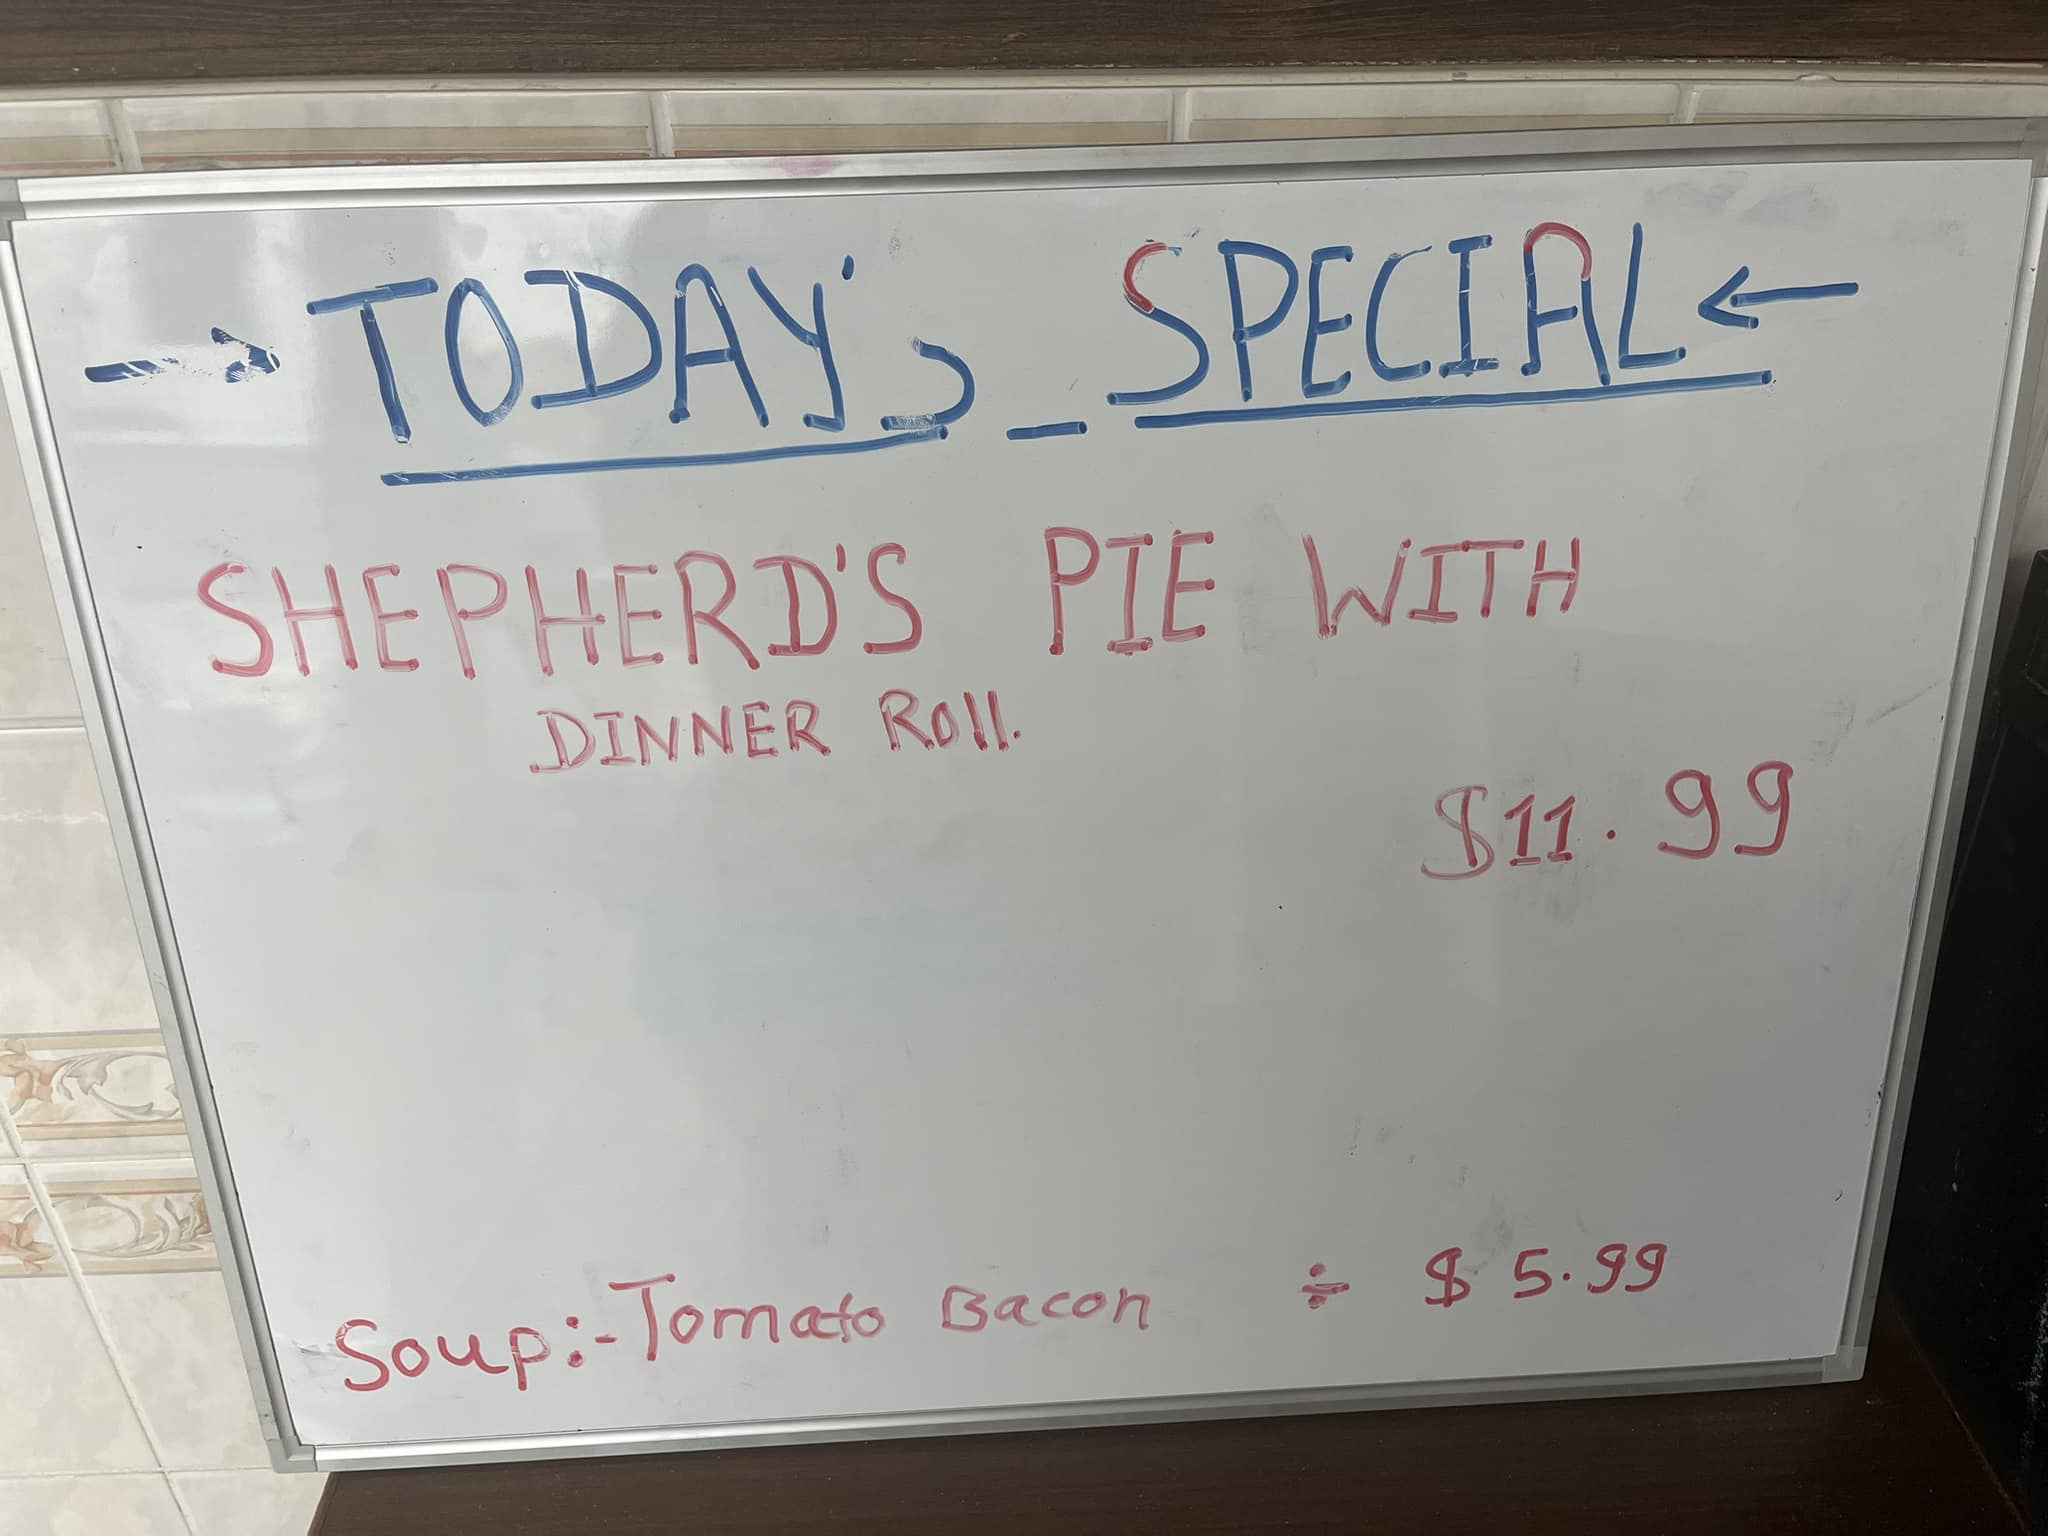 → TODAY's _ SPECIAL ←
SHEPHERD'S PIE WITH
DINNER Roll.
$11.99
Soup:- Tomato Bacon ÷ $ 5.99